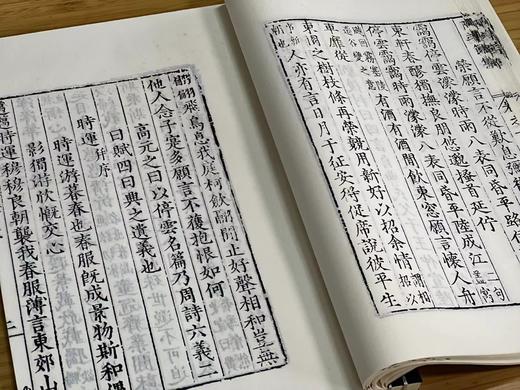 榮願言不從歎息彌襟
靄靄停雲濛濛時雨八表同昏平路伊
東軒春醪獨撫良朋悠邈搔首延佇
停雲靄靄時雨濛濛八表同昏平陸成江
有酒有酒閒飲東窗願言懷人舟
車靡從
東園之樹枝條再榮競用新好以招余情
人亦有言日月于征安得促席說彼平生
翩翩飛鳥息我庭柯斂翮閒止好聲相和豈無
他人念子寔多願言不獲抱恨如何
高元之曰以停雲名篇乃周詩六義二
曰賦四曰興之遺義也
時運并序
時運游暮春也春服既成景物斯和偶
影獨游欣慨交心
邁邁時運穆穆良朝襲我春服薄言東郊山
二